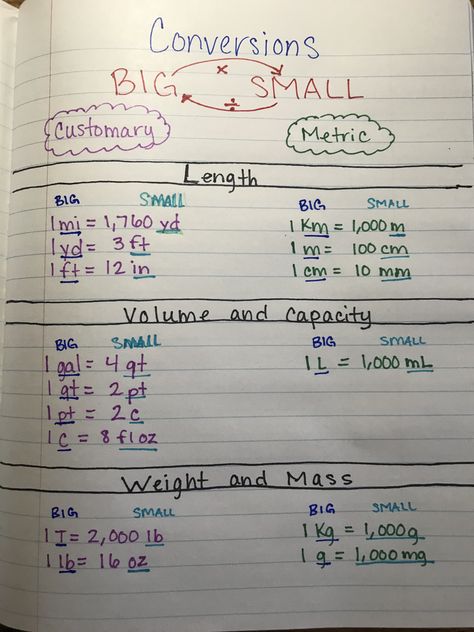 Conversions
×
BIG SMALL
÷
Customary Metric
Length
BIG SMALL BIG SMALL
1 mi = 1,760 yd 1 Km = 1,000 m
1 yd = 3 ft 1 m = 100 cm
1 ft = 12 in 1 cm = 10 mm
Volume and Capacity
BIG SMALL BIG SMALL
1 gal = 4 qt 1 L = 1,000 mL
1 qt = 2 pt
1 pt = 2 c
1 c = 8 fl oz
Weight and Mass
BIG SMALL BIG SMALL
1 T = 2,000 lb 1 Kg = 1,000g
1 lb = 16 oz 1 g = 1,000 mg